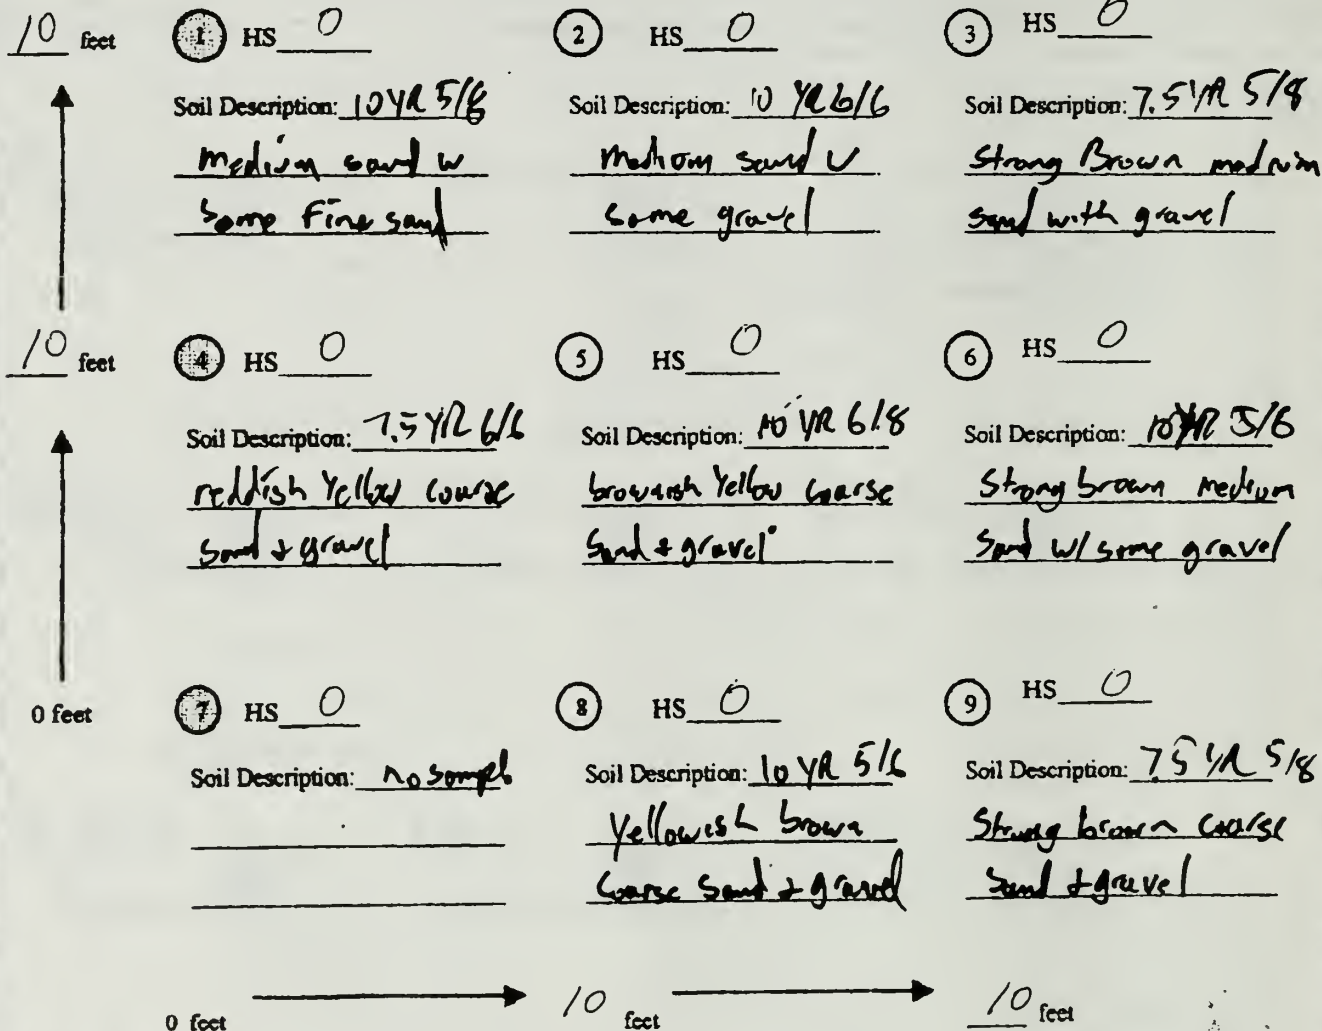 10 feet
1 HS 0
2 HS 0
3 HS 0
Soil Description: 10 YR 5/6
medium sand w
some fine sand
Soil Description: 10 YR 6/6
medium sand w
some gravel
Soil Description: 7.5 YR 5/8
Strong Brown medium
sand with gravel
10 feet
4 HS 0
5 HS 0
6 HS 0
Soil Description: 7.5 YR 6/6
reddish Yellow course
sand + gravel
Soil Description: 10 YR 6/8
brownish Yellow coarse
Sand + gravel
Soil Description: 10 YR 5/6
Strong brown medium
sand w/ some gravel
0 feet
7 HS 0
8 HS 0
9 HS 0
Soil Description: no sample
Soil Description: 10 YR 5/6
Yellowish brown
coarse sand + gravel
Soil Description: 7.5 YR 5/8
Strong brown coarse
sand + gravel
0 feet
10 feet
10 feet